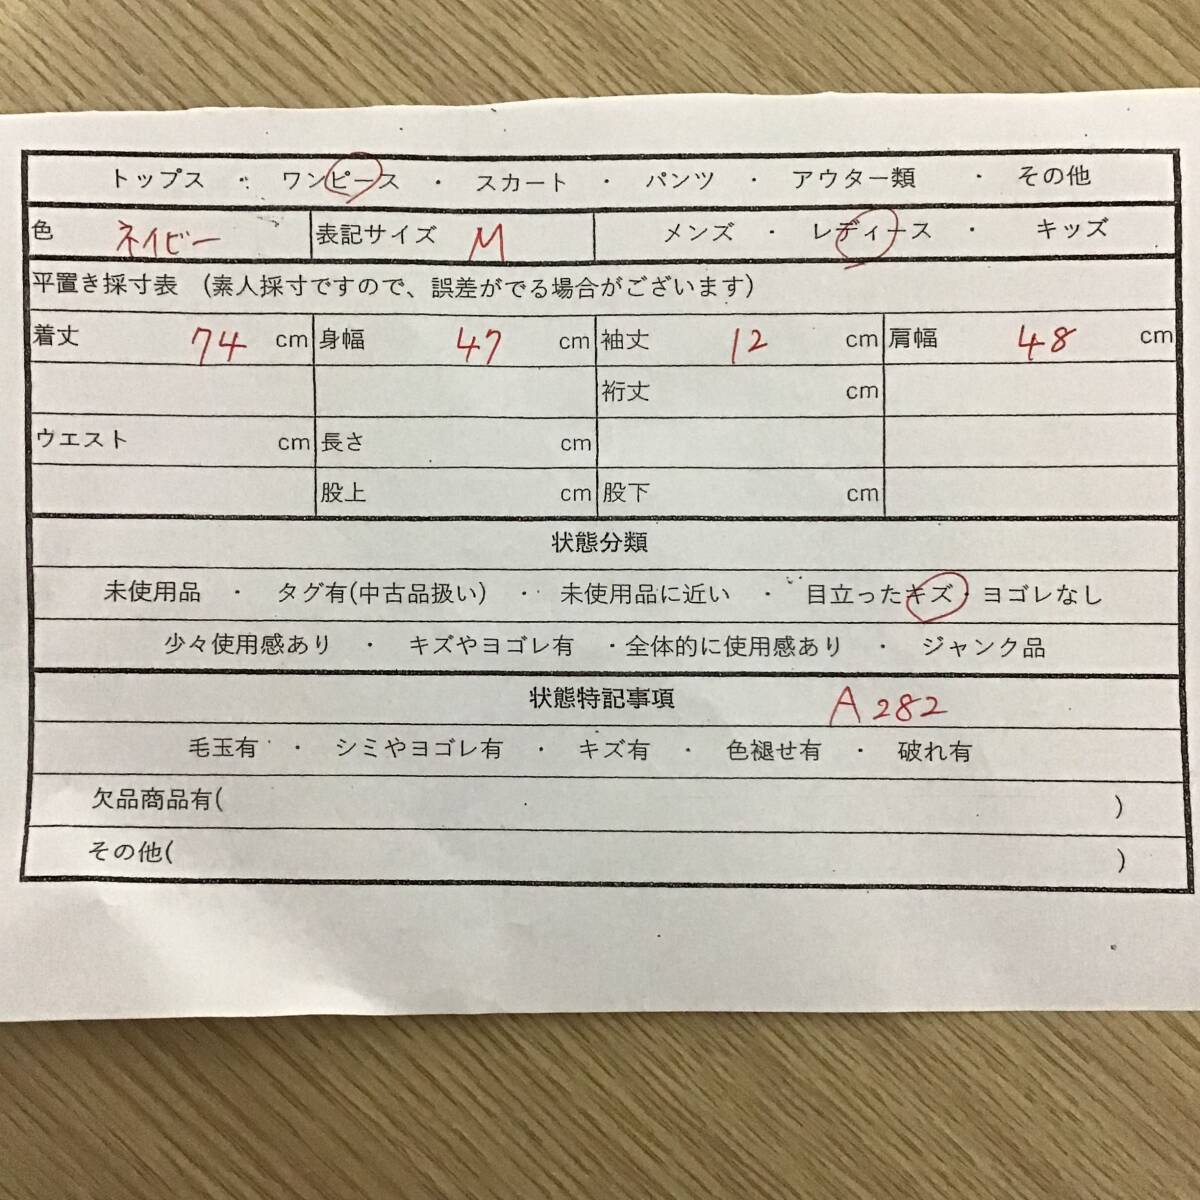 トップス ・ ワンピース ・ スカート ・ パンツ ・ アウター類 ・ その他
色 ネイビー 表記サイズ M メンズ ・ レディース ・ キッズ
平置き採寸表 (素人採寸ですので、誤差がでる場合がございます)
着丈 74 cm 身幅 47 cm 袖丈 12 cm 肩幅 48 cm
裄丈 cm
ウエスト cm 長さ cm
股上 cm 股下 cm
状態分類
未使用品 ・ タグ有(中古品扱い) ・ 未使用品に近い ・ 目立ったキズ・ヨゴレなし
少々使用感あり ・ キズやヨゴレ有 ・全体的に使用感あり ・ ジャンク品
状態特記事項 A282
毛玉有 ・ シミやヨゴレ有 ・ キズ有 ・ 色褪せ有 ・ 破れ有
欠品商品有( )
その他( )